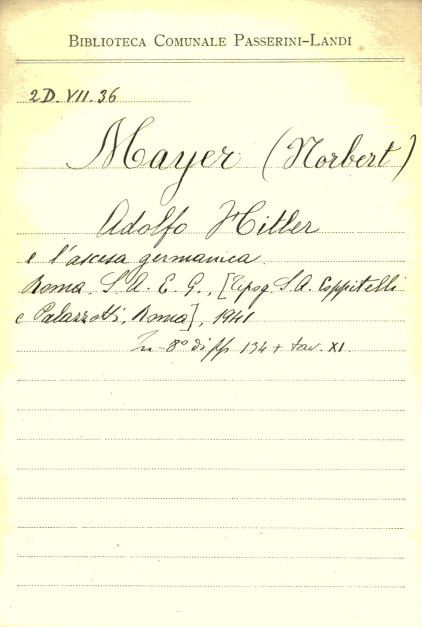 BIBLIOTECA COMUNALE PASSERINI-LANDI
2D. VII. 36
Mayer (Norbert)
Adolfo Hitler
e l'ascesa germanica.
Roma, S. A. E. G., [Tipog. S. A. Coppitelli
e Palazzotti, Roma], 1941
In-8° di pp. 134 + tav. XI